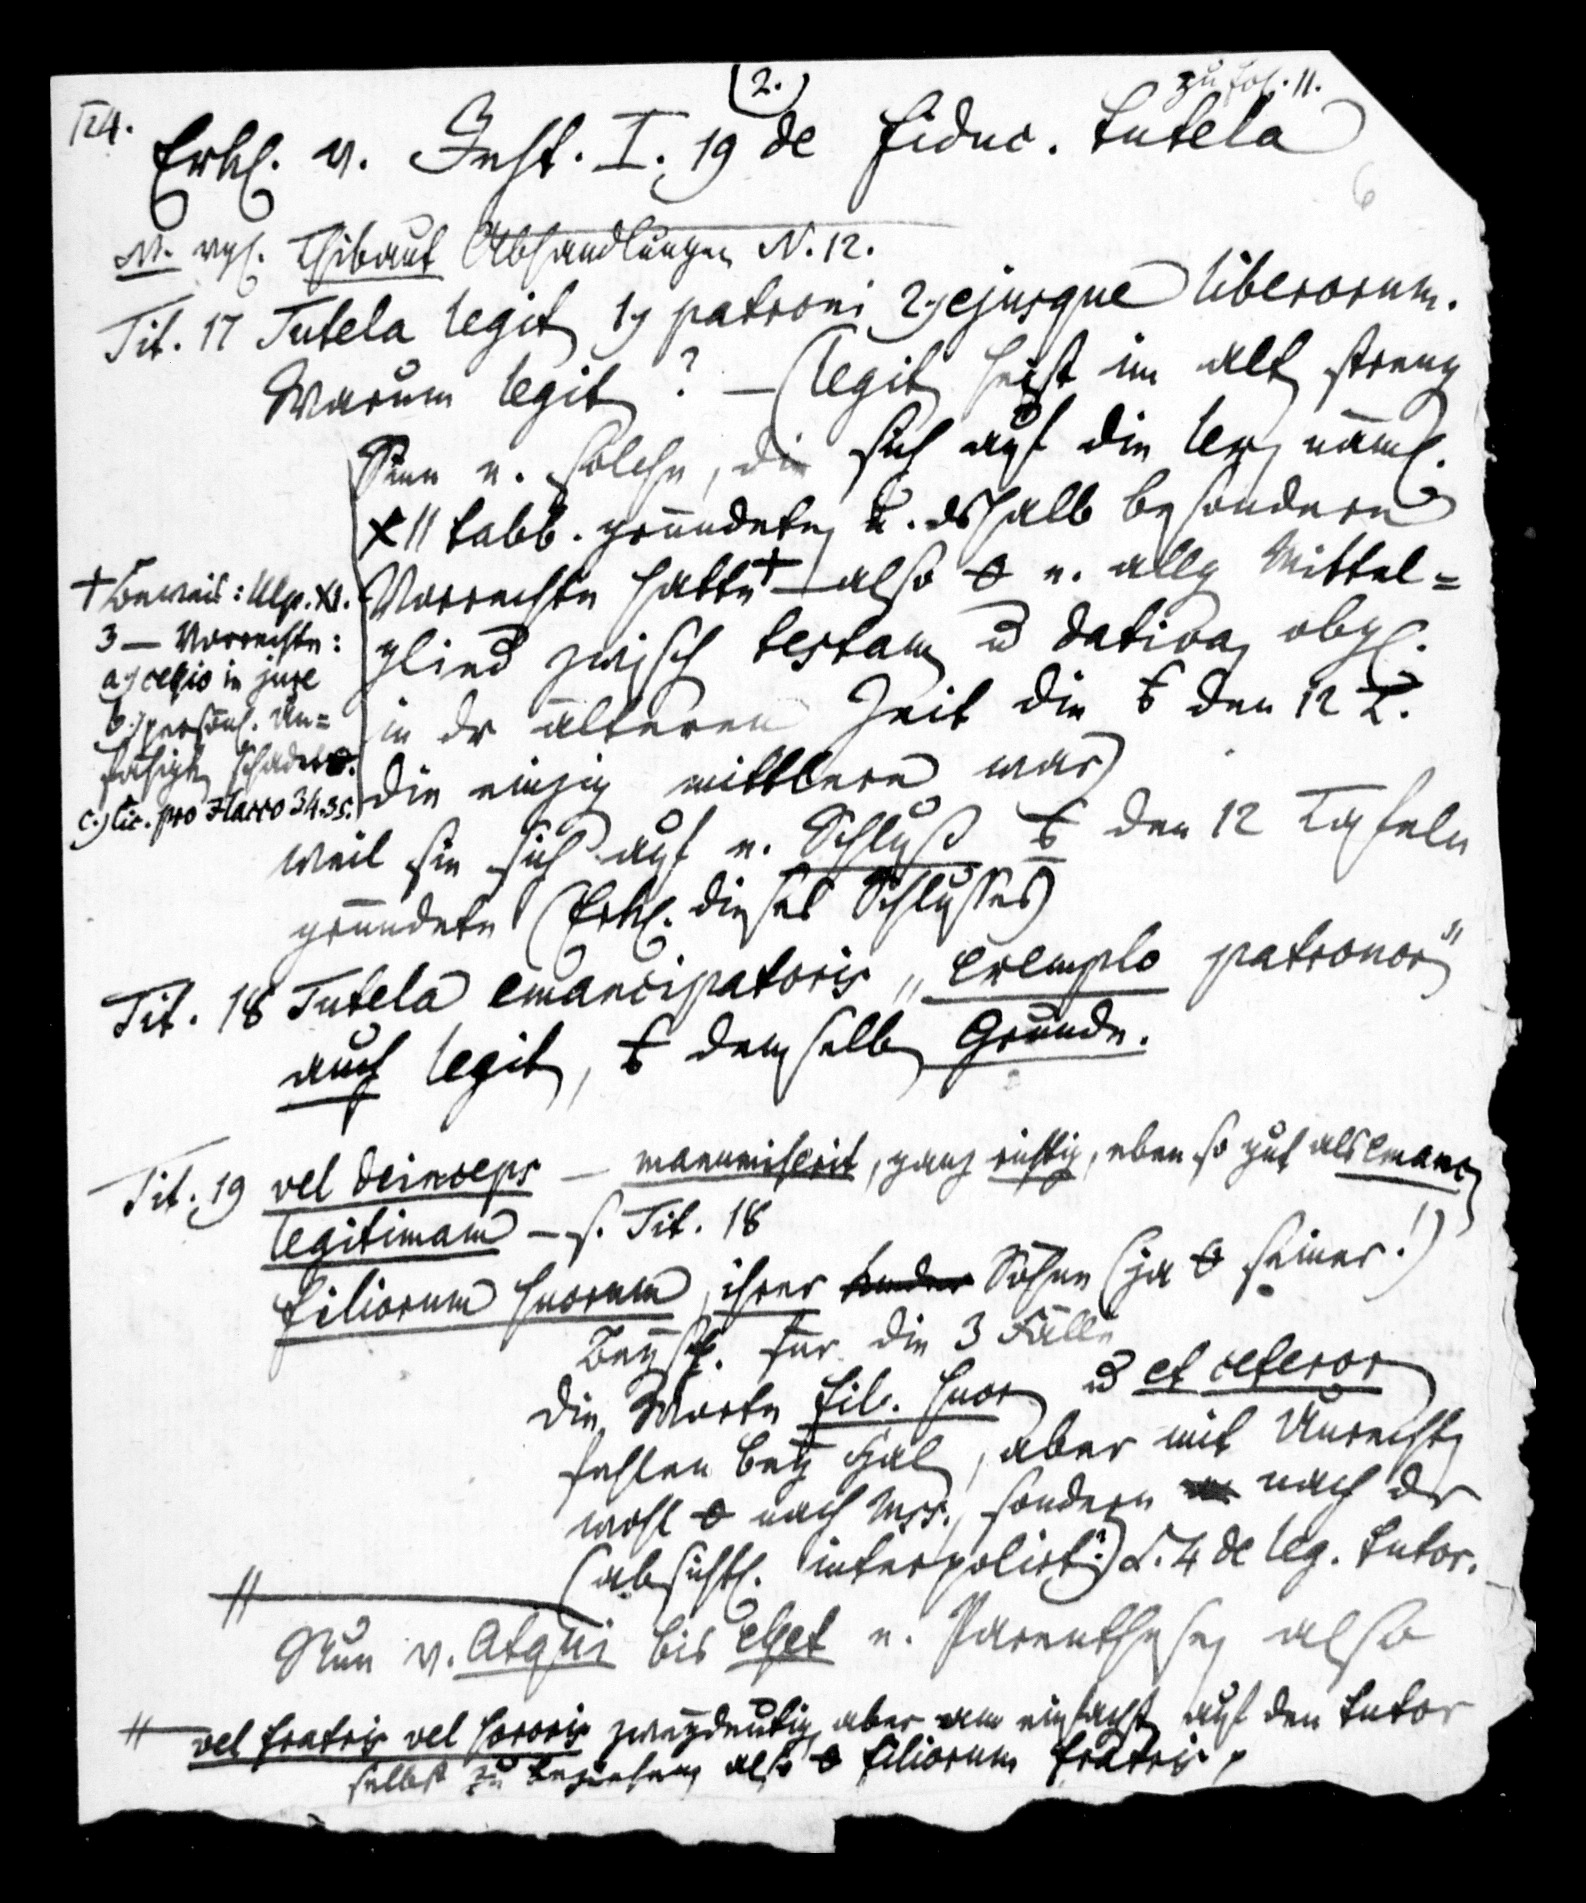 (2.)
zu fol. 11.
124.
Erkl. v. Inst. I. 19 de fiduc. tutela
6
N. vgl. Thibaut Abhandlungen N. 12.
Tit. 17 Tutela legit 1) patroni 2) ejusque liberorum.
Warum legit ? — (legit heist im alt streng
Sinn e. solche, die sich auf die leg nâml.
XII tabb. gründete u. dshalb besondere
Vorrechte hatte + — also e. allg Mittel=
glied zwisch testam u dativa, obgl.
in dr älteren Zeit die den 12 T.
die einzig mittlere war)
+ Beweis: Ulp. XI.
3 — Vorrechte:
a) cessio in jure
b) persönl. Un=
fähigk schadet
c.) Cic. pro Flacco 34.35.
weil sie sich auf e. Schluß den 12 Tafeln
gründete (Erkl. dieses Schlusses)
Tit. 18 Tutela emancipatoris „exemplo patronor"
auch legit, demselb Grunde.
Tit. 19 vel deinceps — manumiserit, ganz richtig, eben so gut als emanc
legitimam — s. Tit. 18
filiorum suorum, ihrer Söhne (ja seiner!)
Beyspl. für die 3 Fälle
die Worte fil. suor u et ceteror
fehlen bey Hal, aber mit Unrecht,
wohl nach Mss., sondern nach dr
(absichtl. interpolirt?) L. 4 de leg. tutor.
//
Nun v. Atqui bis esset e. Parenthese, also
// vel fratris vel sororis zweydeutig, aber am einfachst auf den tutor
selbst zu beziehen, also filiorum fratris,